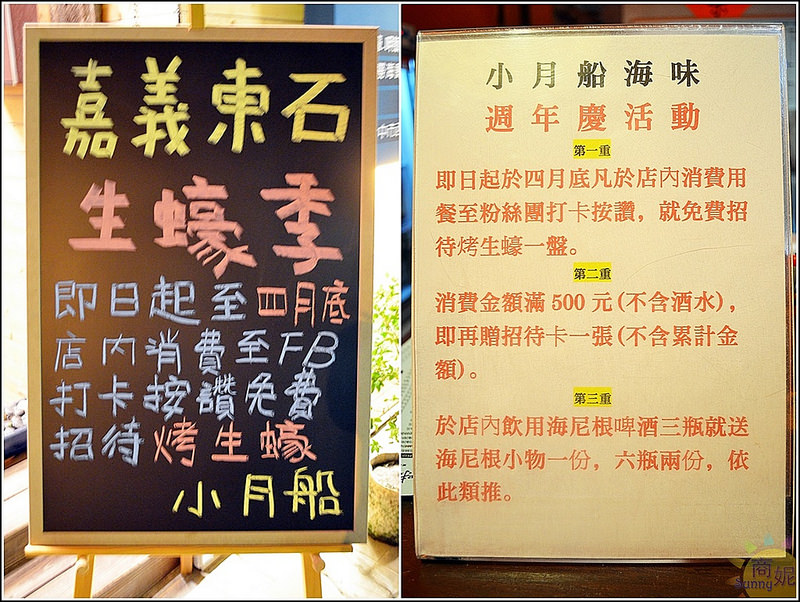 嘉義東石
生蠔季
即日起至四月底
店內消費至FB
打卡按讚免費
招待烤生蠔
小月船
小月船海味
週年慶活動
第一重
即日起於四月底凡於店內消費用
餐至粉絲團打卡按讚，就免費招
待烤生蠔一盤。
第二重
消費金額滿 500 元(不含酒水)，
即再贈招待卡一張(不含累計金
額)。
第三重
於店內飲用海尼根啤酒三瓶就送
海尼根小物一份，六瓶兩份，依
此類推。
商妮
Sunny